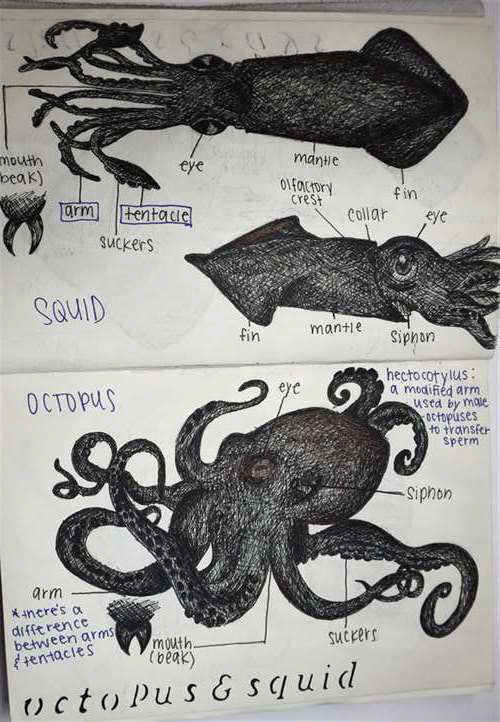 mouth
(beak)
eye
mantle
fin
arm
tentacle
suckers
olfactory
crest
collar
eye
SQUID
fin
mantle
siphon
OCTOPUS
eye
hectocotylus:
a modified arm
used by male
octopuses
to transfer
sperm
siphon
arm
*there's a
difference
between arms
& tentacles
mouth
(beak)
suckers
octopus & squid